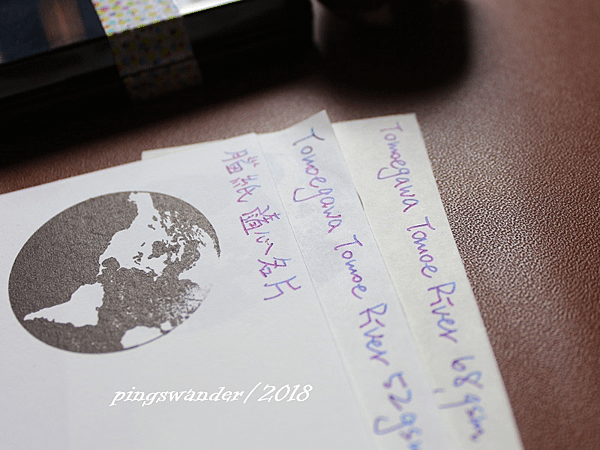 紙 心名片
Tomoegawa Tomoe River 52gsm
Tomoegawa Tomoe River 68gsm
pingswander/2018